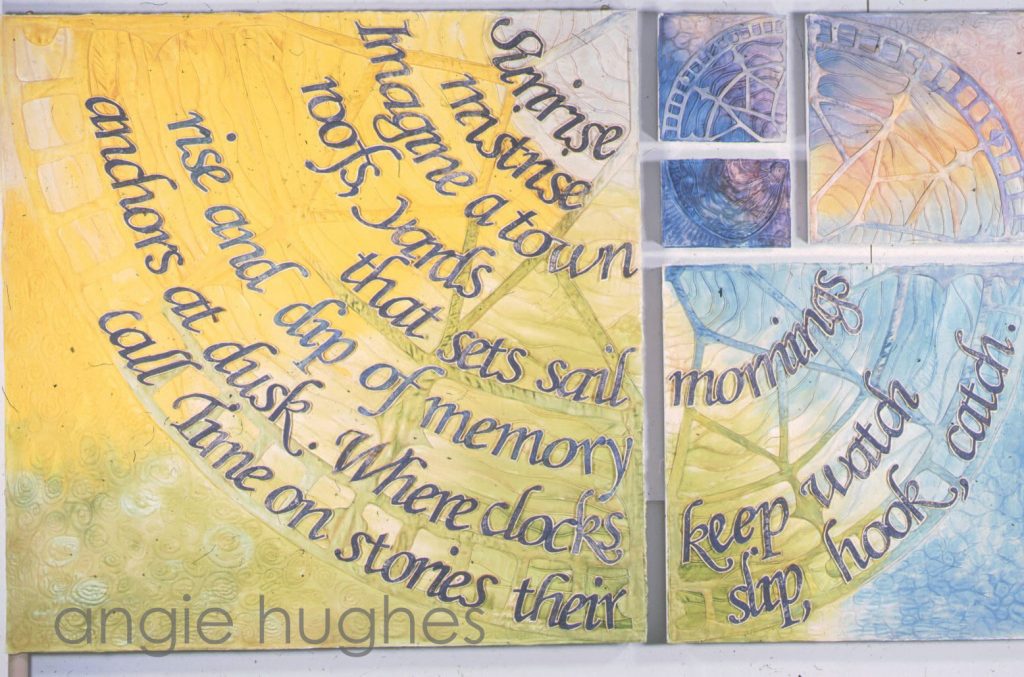 Sunrise
mistrise
Imagine a town
roofs, yards
that sets sail
rise and dip of memory
anchors at dusk. Where clocks
call Time on stories their
mornings
keep watch
slip, hook, catch.
angie hughes